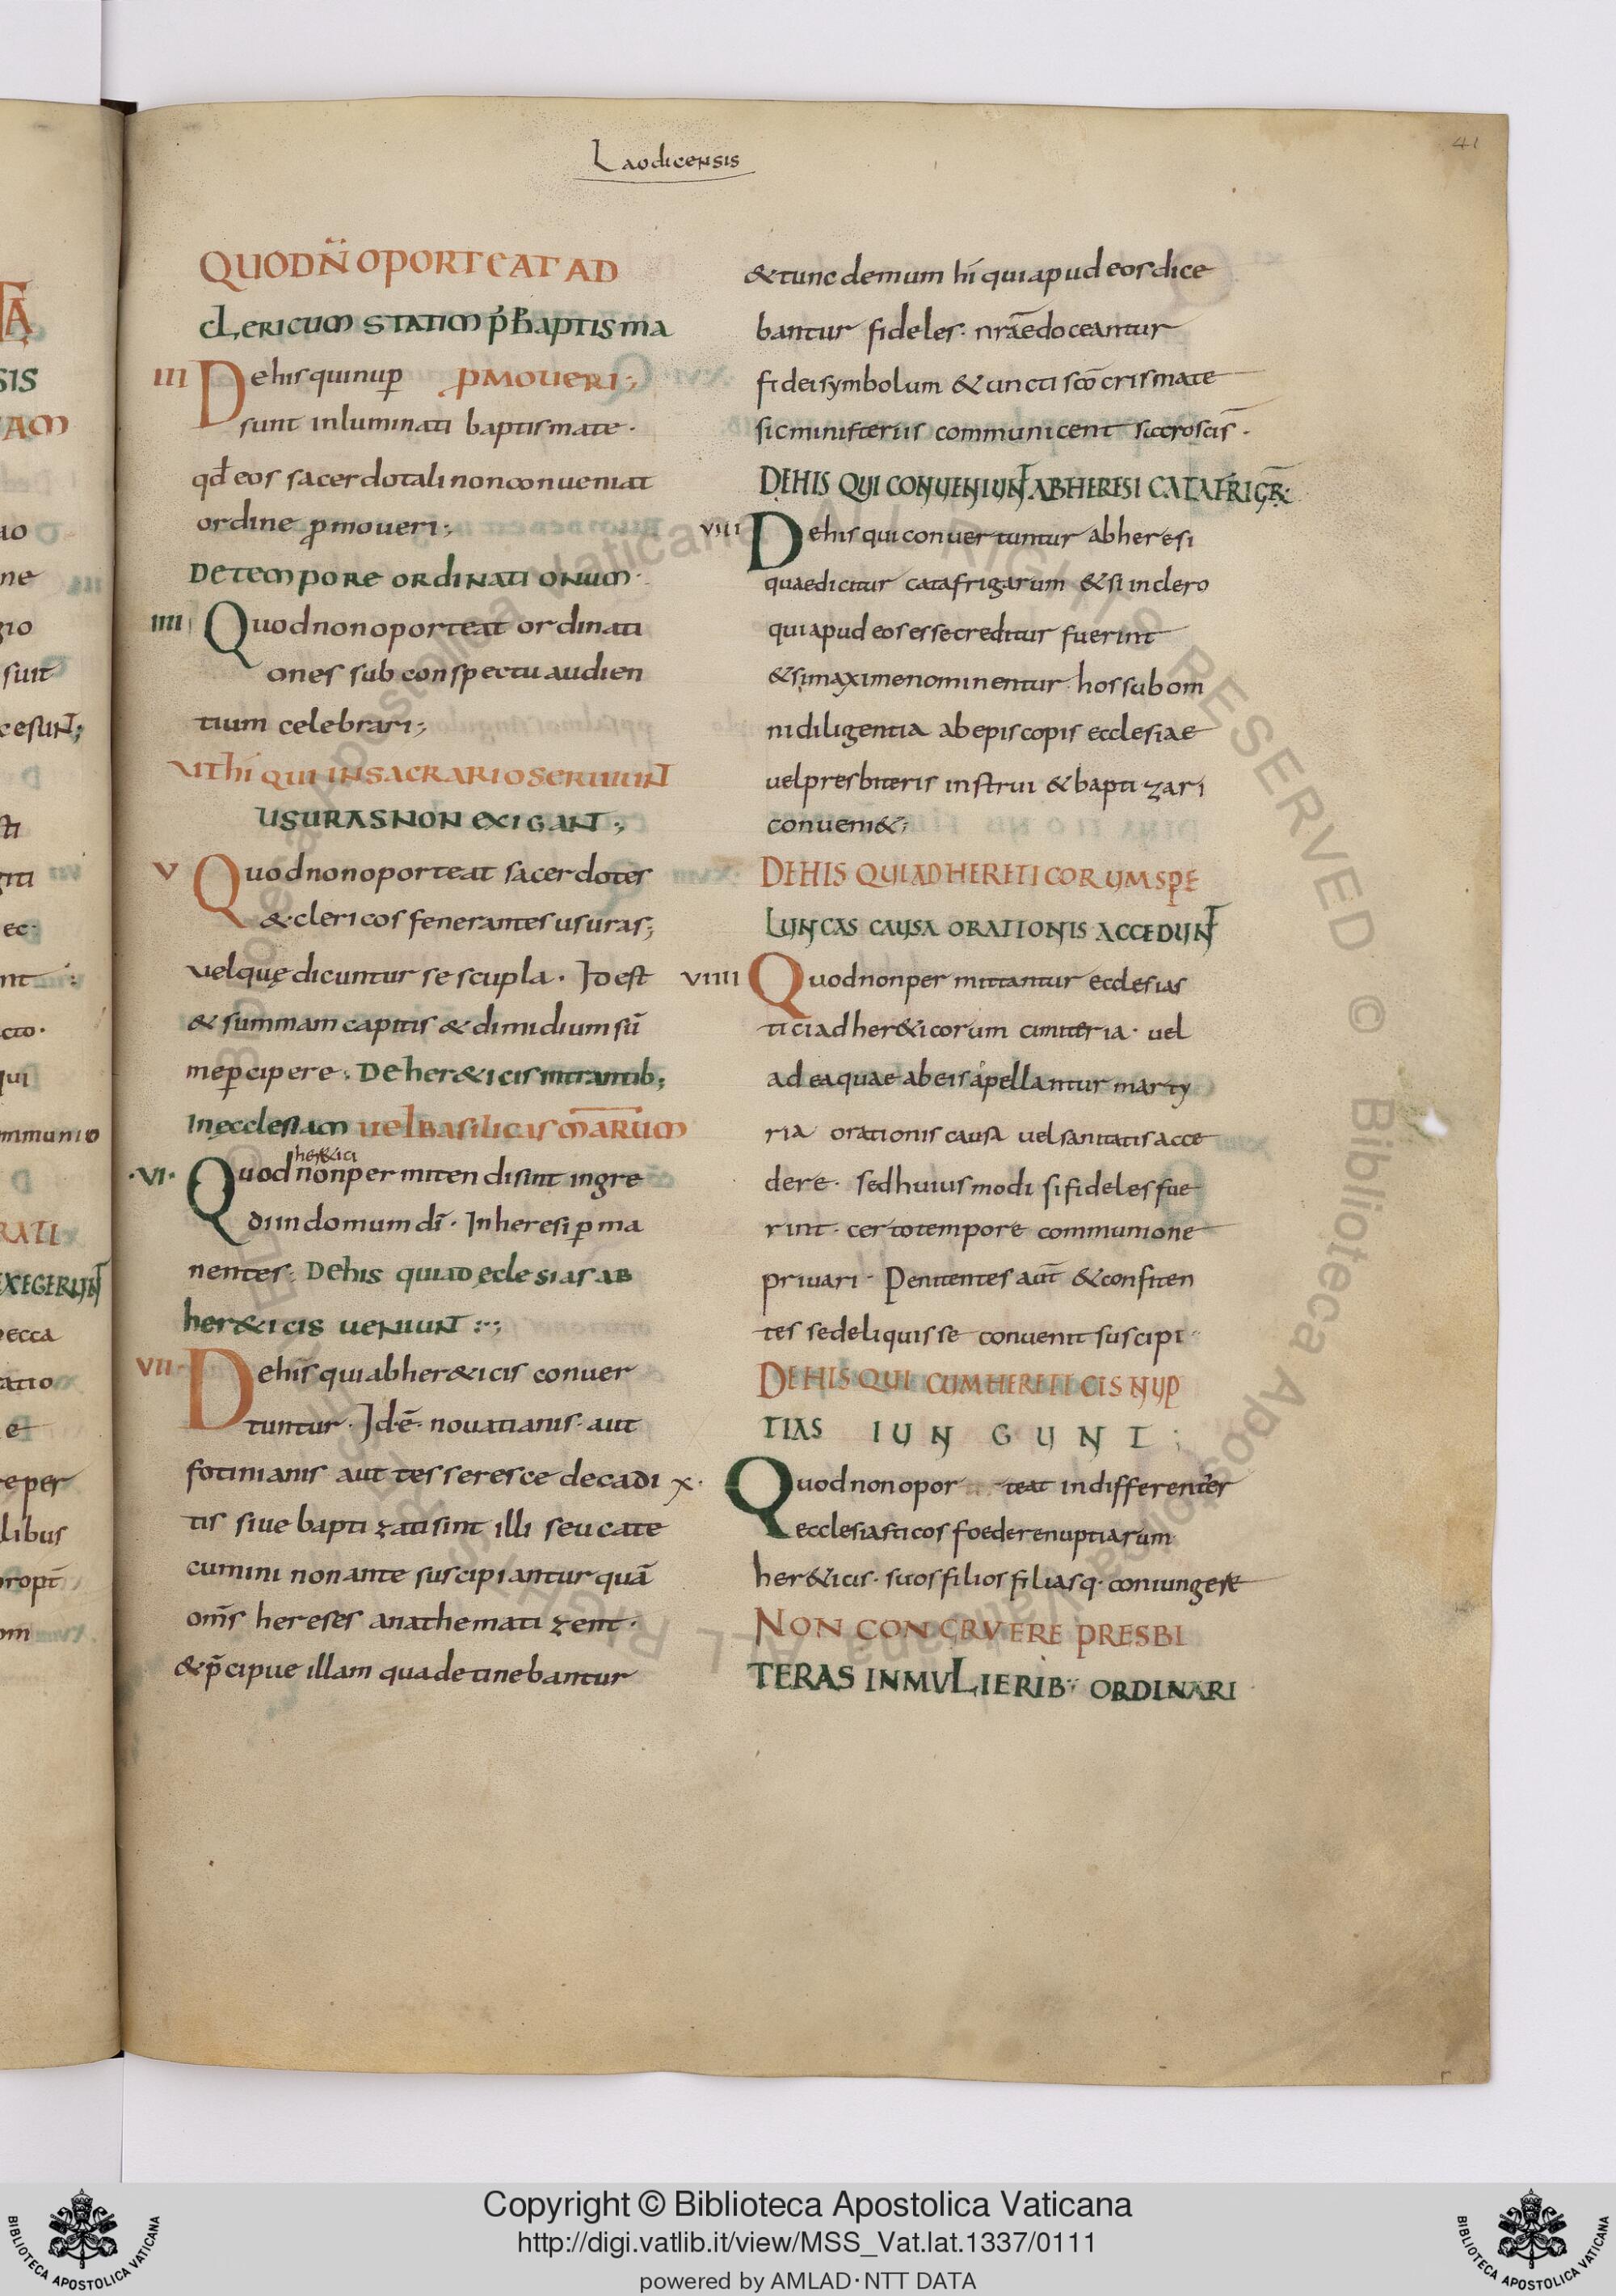 Laodicensis
41
QUOD N̄ OPORTEAT AD
CLERICUM STATIM P̄ BAPTISMA
III De his qui nup̄ PMOUERI;
sunt inluminati baptismate.
qđ eos sacerdotali non conueniat
ordine pmoueri;
DE TEMPORE ORDINATIONUM.
IIII Quod non oporteat ordinati
ones sub conspectu audien
tium celebrari;
UT HI QUI IN SACRARIO SERUIUNT
USURAS NON EXIGANT;
V Quod non oporteat sacerdotes
& clericos fenerantes usuras;
uel quę dicuntur sescupla. Id est
& summam capitis & dimidium sū
me pcipere. De her&icis intrantib;
In ecclesiam uel basilicis m̄arum
her&ici
.VI. Quod non permitendi sint ingre
di in domum dī. In heresi pma
nentes. De his qui ad eclesias ab
her&icis ueniunt:;
VII De his qui ab her&icis conuer
tuntur. Id.ē. nouatianis. aut
fotinianis aut tesseresce decadi
tis siue baptizati sint illi seu cate
cumini non ante suscipiantur quā
om̄s hereses anathematizent.
& p̄cipue illam qua detinebantur
& tunc demum hi qui apud eos dice
bantur fideles. nr̄ae doceantur
fidei symbolum & uncti sc̄o crismate
sic ministeriis communicent sacrosc̄is.
DE HIS QUI CONUENIUNT AB HERESI CATAFRIGR̄;
VIII De his qui conuertuntur ab heresi
quae dicitur catafrigarum & si in clero
qui apud eos esse creditur fuerint
& si maxime nominentur hos sub om
ni diligentia ab episcopis ecclesiae
uel presbiteris instrui & baptizari
conueni&;
DE HIS QUI AD HERETICORUM SPE
LUNCAS CAUSA ORATIONIS ACCEDUNT
VIIII Quod non permittantur ecclesias
tici ad her&icorum cimiteria. uel
ad ea quae ab eis apellantur marty
ria orationis causa uel sanitatis acce
dere. sed huiusmodi si fideles fue
rint. certo tempore communione
priuari. Penitentes aut̄ & confiten
tes se deliquisse conuenit suscipi.
DE HIS QUI CUM HERETICIS NUP
TIAS IUNGUNT;
X. Quod non opor teat indifferenter
ecclesiasticos foedere nuptiarum
her&icis. suos filios filiasq. coniungere
NON CONGRUERE PRESBI
TERAS IN MULIERIB; ORDINARI
Copyright © Biblioteca Apostolica Vaticana
http://digi.vatlib.it/view/MSS_Vat.lat.1337/0111
powered by AMLAD·NTT DATA
BIBLIOTECA APOSTOLICA VATICANA
BIBLIOTECA APOSTOLICA VATICANA